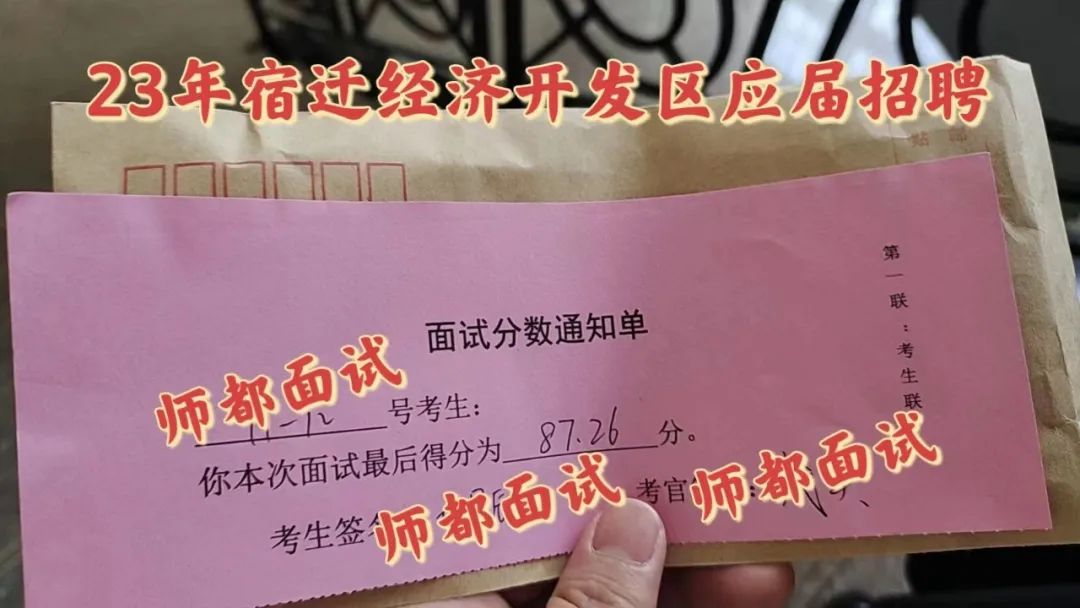 23年宿迁经济开发区应届招聘
第一联：考生联
面试分数通知单
师都面试
号考生：
你本次面试最后得分为 87.26 分。
考生签
师都面试
考官
师都面试